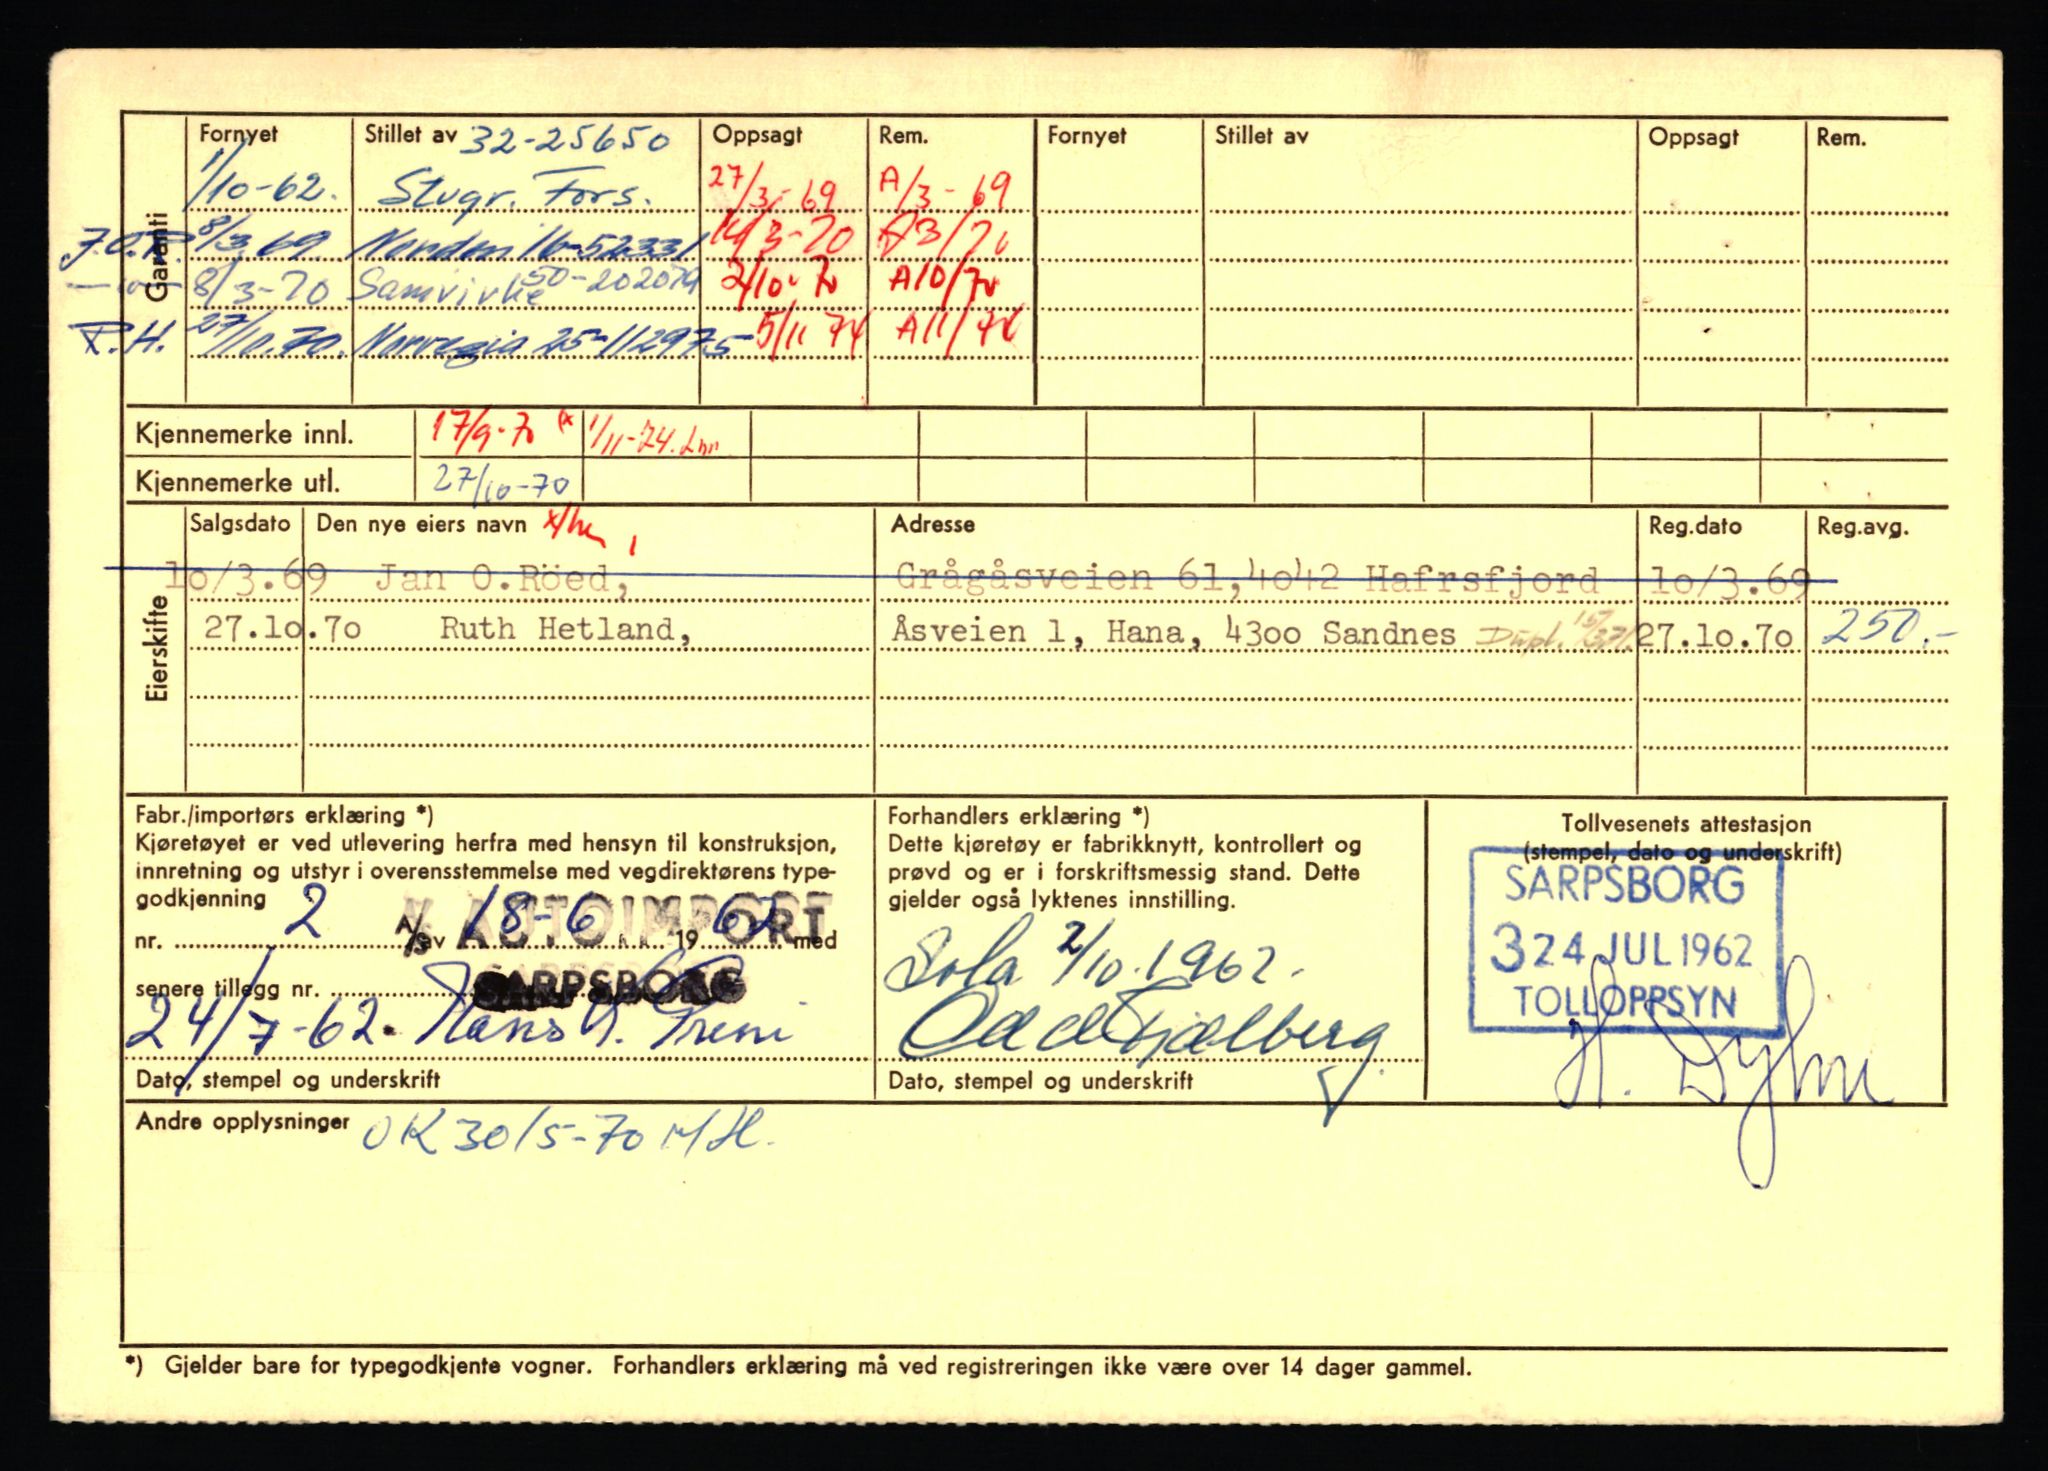 Garanti
Fornyet Stillet av 32-25650 Oppsagt Rem. Fornyet Stillet av Oppsagt Rem.
1/10-62. Stvgr. Fors. 27/3-69 A/3-69
J.O.R. 8/3.69. Norden 16-52331 14/3-70 A3/70
—"— 8/3-70 Samvirke 50-202079 2/10-70 A10/70
R.H. 27/10.70. Norvegia 25-112975- 5/11 74 A11/74
Kjennemerke innl. 17/9-70 (x 1/11-74.
Kjennemerke utl. 27/10-70
Eierskifte
Salgsdato Den nye eiers navn Adresse Reg.dato Reg.avg.
lo/3.69 Jan O.Röed, Grågåsveien 61,4o42 Hafrsfjord lo/3.69
27.lo.7o Ruth Hetland, Åsveien 1, Hana, 43oo Sandnes Dupl. 15/3.71. 27.lo.7o 250.-
Fabr./importørs erklæring *)
Kjøretøyet er ved utlevering herfra med hensyn til konstruksjon,
innretning og utstyr i overensstemmelse med vegdirektørens type-
godkjenning
nr. 2 av 18-6 1962 med
A/S AUTOIMPORT
SARPSBORG
senere tillegg nr.
24/7-62. Hans
Dato, stempel og underskrift
Forhandlers erklæring *)
Dette kjøretøy er fabrikknytt, kontrollert og
prøvd og er i forskriftsmessig stand. Dette
gjelder også lyktenes innstilling.
Sola 2/10.1962.
Odd Fjælberg
Dato, stempel og underskrift
Tollvesenets attestasjon
(stempel, dato og underskrift)
SARPSBORG
324 JUL 1962
TOLLOPPSYN
Andre opplysninger OK 30/5-70 MH.
*) Gjelder bare for typegodkjente vogner. Forhandlers erklæring må ved registreringen ikke være over 14 dager gammel.